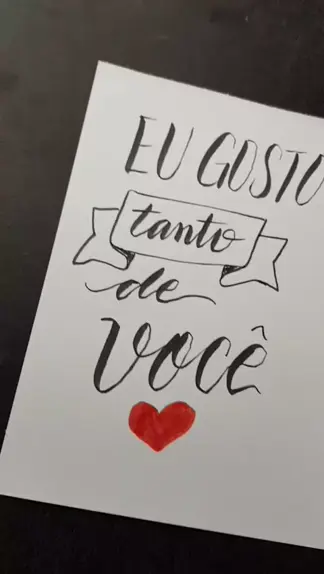 EU GOSTO
tanto
de
você